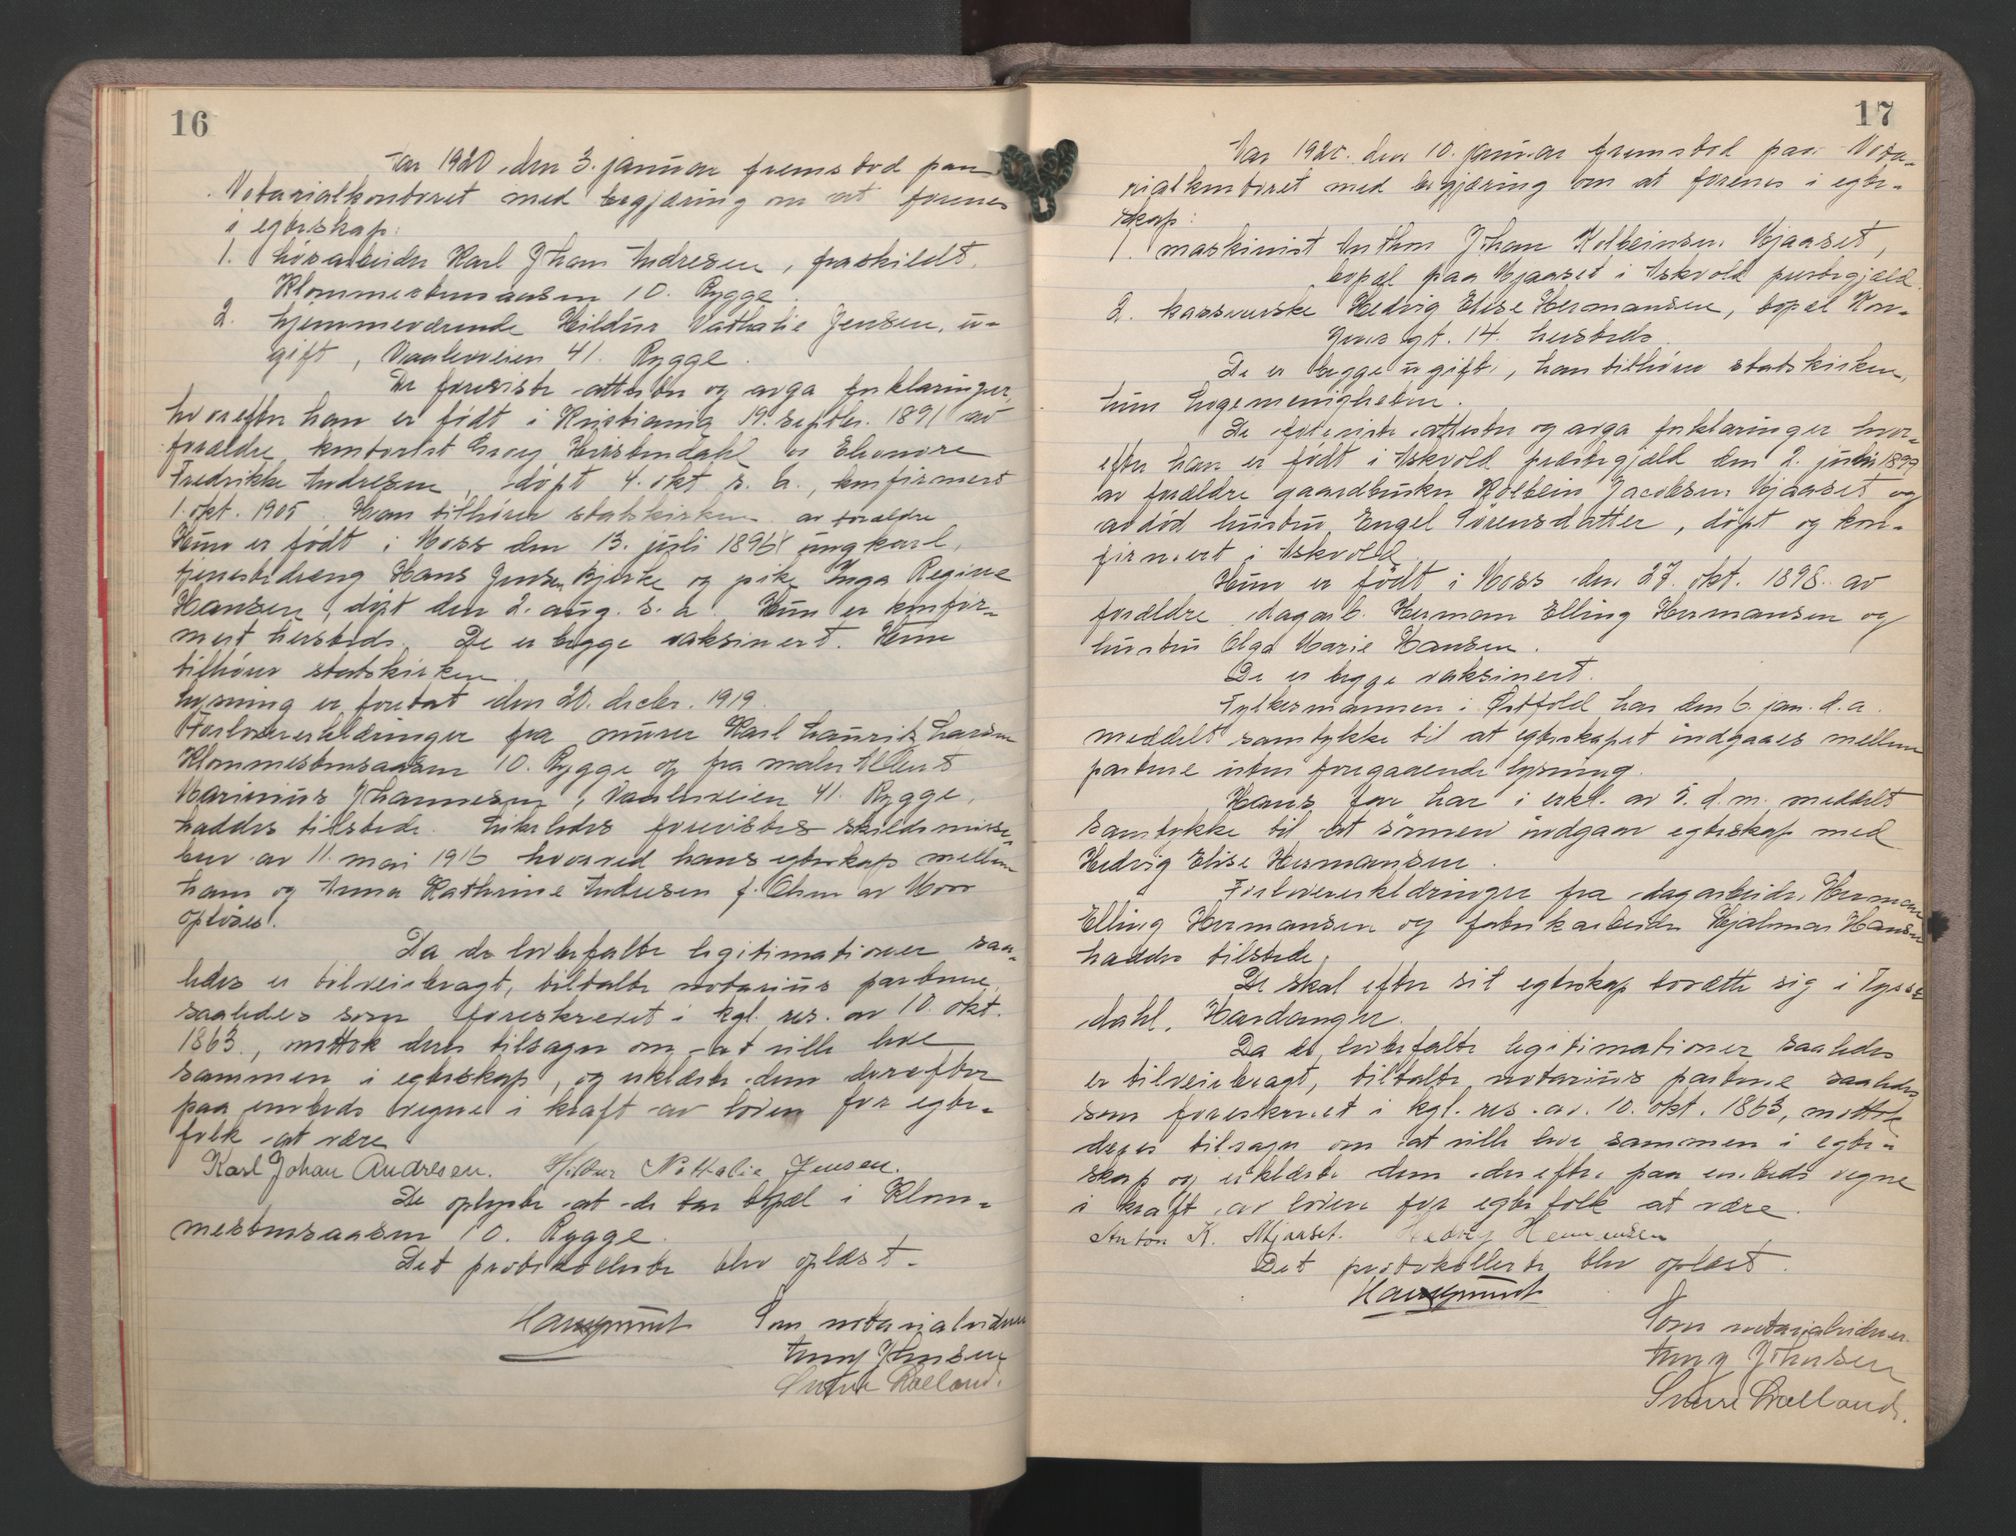 16
Aar 1920 den 3. januar fremstod paa
Notarialkontoret med begjæring om at forenes
i egteskap:
1. løsarbeider Karl Johan Andresen, fraskildt,
Klommestensaasen 10. Rygge
2. hjemmeværende Hildur Nathalie Jensen, u-
gift, Vaalerveien 41. Rygge.
De foreviste attester og avga forklaringer,
hvorefter han er født i Kristiania 19. septbr. 1891 av
forældre kontorist Georg Kristendahl og Elenore
Fredrikke Andresen, døpt 4. okt s. a., konfirmert
1. okt. 1905. Han tilhører statskirken. av forældre
Hun er født i Moss den 13. juli 1896 ungkarl,
tjenestedreng Hans Jensen Bjerke og pike Inga Regine
Hansen, døpt den 2. aug. s. a. Hun er konfir-
mert hersteds. De er begge vaksinert. Hun
tilhører statskirken
Lysning er foretat den 20. decbr. 1919.
Forlovererklæringer fra murer Karl Laurits Larsen
Klommestensaasen 10. Rygge og fra maler Albert
Marinius Johannesen, Vaalerveien 41. Rygge,
haddes tilstede. Likeledes forevistes skilsmisse-
brev av 11. mai 1916 hvorved hans egteskap mellem
ham og Anna Kathrine Andresen f. Olsen av Moss
opløses.
Da de lovbefalte legitimationer saa-
ledes er tilveiebragt, tiltalte notarius partene,
saaledes som foreskrevet i kgl. res. av 10. okt.
1863., mottok deres tilsagn om at ville leve
sammen i egteskap, og erklærte dem derefter
paa embeds vegne i kraft av loven for egte-
folk at være
Karl Johan Andresen. Hildur Nathalie Jensen.
De oplyste at de tar bopæl i Klom-
mestensaasen 10. Rygge.
Det protokollerte blev oplæst.
Haugsrud Som notarialvidner
Anny Johnsen
Sverre Lølland.
17
Aar 1920. den 10. januar fremstod paa Nota-
rialkontoret med begjæring om at forenes i egte-
skap:
1. maskinist Anthon Johan Kolbeinsen Mjaaset,
bopæl paa Mjaaset i Askvold prestegjæld.
2. kassererske Hedvig Elise Hermansen, bopæl Kon-
gens gt. 14. hersteds.
De er begge ugifte, han tilhører statskirken,
hun Logemenigheten.
De foreviste attester og avga forklaringer hvor-
efter han er født i Askvold præstegjæld den 2. juni 1899
av forældre gaardbruker Kolbein Jacobsen Mjaaset og
avdød hustru Engel Sørensdatter, døpt og kon-
firmert i Askvold.
Hun er født i Moss den 27. okt. 1898. av
forældre dagarb. Herman Elling Hermansen og
hustru Olga Marie Hansen.
De er begge vaksinert.
Fylkesmannen i Østfold har den 6. jan. d. a.
meddelt samtykke til at egteskapet indgaaes mellem
partene uten foregaaende lysning.
Hans far har i erkl. av 5. d. m. meddelt
samtykke til at sønnen indgaar egteskap med
Hedvig Elise Hermansen.
Forlovererklæringer fra dagarbeider Herman
Elling Hermansen og fabrikarbeider Hjalmar Hansen
haddes tilstede.
De skal efter sit egteskap bosætte sig i Tysse-
dahl, Hardanger.
Da de lovbefalte legitimationer saaledes
er tilveiebragt, tiltalte notarius partene saaledes
som foreskrevet i kgl. res. av. 10. okt. 1863, mottok
deres tilsagn om at ville leve sammen i egte-
skap og erklærte dem derefter paa embeds vegne
i kraft av loven for egtefolk at være.
Anton K. Mjaaset. Hedvig Hermansen
Det protokollerte blev oplæst.
Haugsrud
Som notarialvidner.
Anny Johnsen
Sverre Lølland.